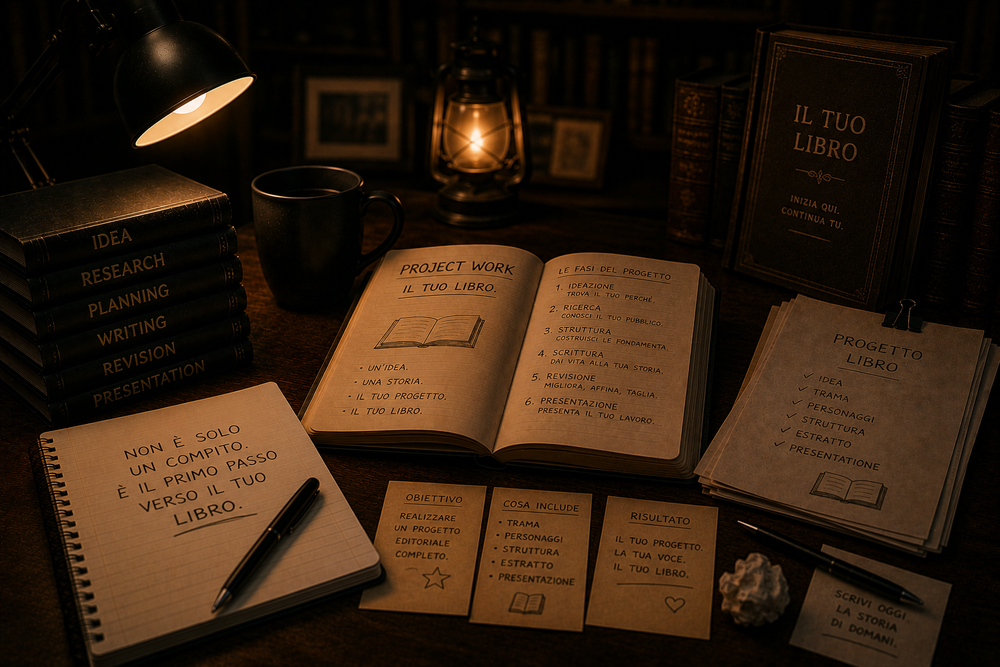 IDEA
RESEARCH
PLANNING
WRITING
REVISION
PRESENTATION
NON È SOLO
UN COMPITO.
È IL PRIMO PASSO
VERSO IL TUO
LIBRO.
PROJECT WORK
IL TUO LIBRO.
- UN'IDEA.
- UNA STORIA.
- IL TUO PROGETTO.
- IL TUO LIBRO.
LE FASI DEL PROGETTO
1. IDEAZIONE
TROVA IL TUO PERCHÉ.
2. RICERCA
CONOSCI IL TUO PUBBLICO.
3. STRUTTURA
COSTRUISCI LE FONDAMENTA.
4. SCRITTURA
DAI VITA ALLA TUA STORIA.
5. REVISIONE
MIGLIORA, AFFINA, TAGLIA.
6. PRESENTAZIONE
PRESENTA IL TUO LAVORO.
IL TUO
LIBRO
INIZIA QUI.
CONTINUA TU.
PROGETTO
LIBRO
✓ IDEA
✓ TRAMA
✓ PERSONAGGI
✓ STRUTTURA
✓ ESTRATTO
✓ PRESENTAZIONE
OBIETTIVO
REALIZZARE
UN PROGETTO
EDITORIALE
COMPLETO.
COSA INCLUDE
• TRAMA
• PERSONAGGI
• STRUTTURA
• ESTRATTO
• PRESENTAZIONE
RISULTATO
IL TUO PROGETTO.
LA TUA VOCE.
IL TUO LIBRO.
SCRIVI OGGI
LA STORIA
DI DOMANI.